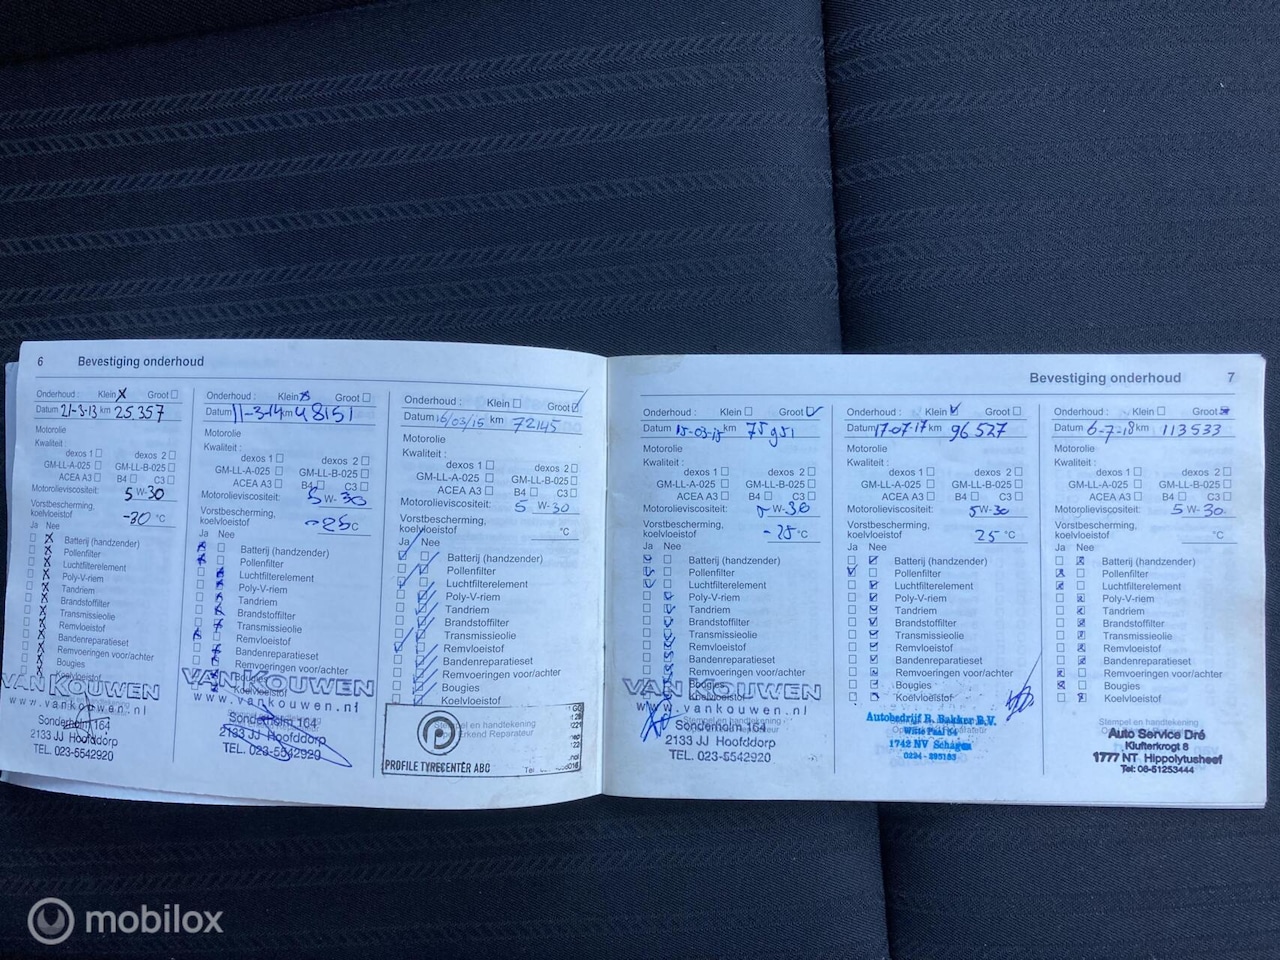 6 Bevestiging onderhoud
Onderhoud : Klein X Groot
Datum 21-3-13 km 25.357
Motorolie
Kwaliteit :
dexos 1 dexos 2
GM-LL-A-025 GM-LL-B-025
ACEA A3 B4 C3
Motorolieviscositeit: 5 W-30
Vorstbescherming,
koelvloeistof -30 °C
Ja Nee
Batterij (handzender)
Pollenfilter
Luchtfilterelement
Poly-V-riem
Tandriem
Brandstoffilter
Transmissieolie
Remvloeistof
Bandenreparatieset
Remvoeringen voor/achter
Bougies
Koelvloeistof
VAN KOUWEN
www.vankouwen.nl
Sonderholm 164
2133 JJ Hoofddorp
TEL. 023-5542920
Onderhoud : Klein Groot
Datum 11-3-14 km 48151
Motorolie
Kwaliteit :
dexos 1 dexos 2
GM-LL-A-025 GM-LL-B-025
ACEA A3 B4 C3
Motorolieviscositeit: 5 W-30
Vorstbescherming,
koelvloeistof -25 °C
Ja Nee
Batterij (handzender)
Pollenfilter
Luchtfilterelement
Poly-V-riem
Tandriem
Brandstoffilter
Transmissieolie
Remvloeistof
Bandenreparatieset
Remvoeringen voor/achter
Bougies
Koelvloeistof
VAN KOUWEN
www.vankouwen.nl
Sonderholm 164
2133 JJ Hoofddorp
TEL. 023-5542920
Onderhoud : Klein Groot
Datum 16/03/15 km 72145
Motorolie
Kwaliteit :
dexos 1 dexos 2
GM-LL-A-025 GM-LL-B-025
ACEA A3 B4 C3
Motorolieviscositeit: 5 W-30
Vorstbescherming,
koelvloeistof °C
Ja Nee
Batterij (handzender)
Pollenfilter
Luchtfilterelement
Poly-V-riem
Tandriem
Brandstoffilter
Transmissieolie
Remvloeistof
Bandenreparatieset
Remvoeringen voor/achter
Bougies
Koelvloeistof
Stempel en handtekening
Opel Erkend Reparateur
PROFILE TYRECENTER ABC
Bevestiging onderhoud 7
Onderhoud : Klein Groot
Datum 15-03-15 km 75951
Motorolie
Kwaliteit :
dexos 1 dexos 2
GM-LL-A-025 GM-LL-B-025
ACEA A3 B4 C3
Motorolieviscositeit: W-30
Vorstbescherming,
koelvloeistof -25 °C
Ja Nee
Batterij (handzender)
Pollenfilter
Luchtfilterelement
Poly-V-riem
Tandriem
Brandstoffilter
Transmissieolie
Remvloeistof
Bandenreparatieset
Remvoeringen voor/achter
Bougies
Koelvloeistof
VAN KOUWEN
www.vankouwen.nl
Stempel en handtekening
Sonderholm 164
2133 JJ Hoofddorp
TEL. 023-5542920
Onderhoud : Klein Groot
Datum 17-07-17 km 96527
Motorolie
Kwaliteit :
dexos 1 dexos 2
GM-LL-A-025 GM-LL-B-025
ACEA A3 B4 C3
Motorolieviscositeit: 5 W-30
Vorstbescherming,
koelvloeistof 25 °C
Ja Nee
Batterij (handzender)
Pollenfilter
Luchtfilterelement
Poly-V-riem
Tandriem
Brandstoffilter
Transmissieolie
Remvloeistof
Bandenreparatieset
Remvoeringen voor/achter
Bougies
Koelvloeistof
Autobedrijf R. Bakker B.V.
Witte Paal 54
1742 NV Schagen
0224 - 295183
Onderhoud : Klein Groot
Datum 6-7-18 km 113533
Motorolie
Kwaliteit :
dexos 1 dexos 2
GM-LL-A-025 GM-LL-B-025
ACEA A3 B4 C3
Motorolieviscositeit: 5 W-30
Vorstbescherming,
koelvloeistof °C
Ja Nee
Batterij (handzender)
Pollenfilter
Luchtfilterelement
Poly-V-riem
Tandriem
Brandstoffilter
Transmissieolie
Remvloeistof
Bandenreparatieset
Remvoeringen voor/achter
Bougies
Koelvloeistof
Stempel en handtekening
Auto Service Dré
Klufterkrogt 8
1777 NT Hippolytushoef
Tel: 06-51253444
mobilox